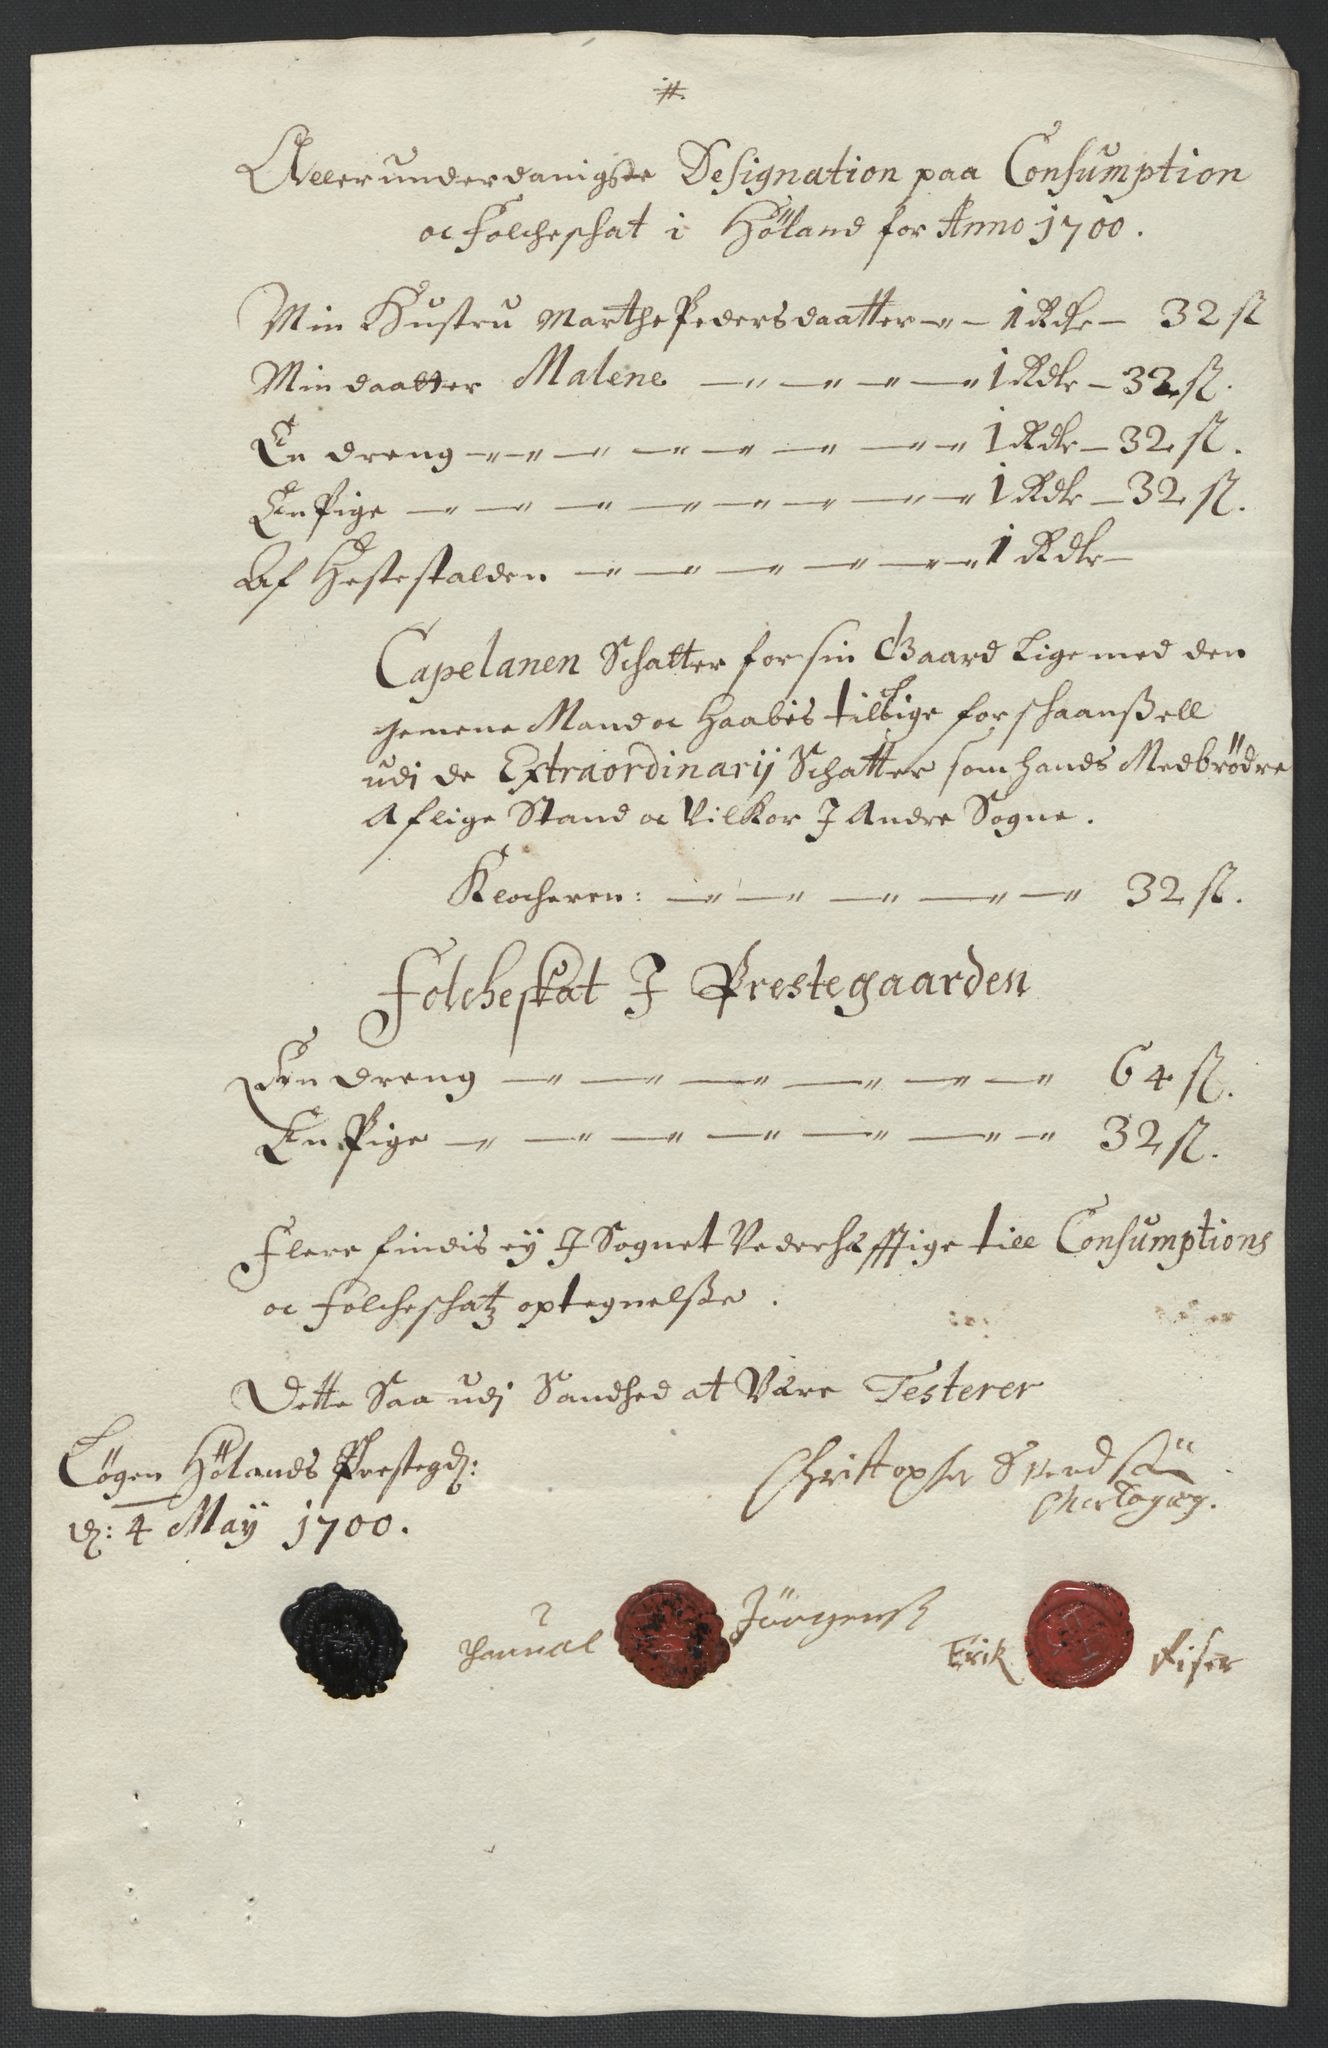 Allerunderdanigste Designation paa Consumption
oc Folcheschat i Höland for Anno 1700.
Min Hustru Marthe Pedersdaatter 1 Rdr 32 sl
Min daatter Malene 1 Rdr 32 sl.
En dreng 1 Rdr 32 sl.
En Pige 1 Rdr 32 sl.
Af Hestestalden 1 Rdr
Capelanen Schatter for sin Gaard Lige med den
gemene Mand oc Haabis tillige forschaanßell
udj de Extraordinarij Schatter som hands Medbrödre
Aflige Stand oc Vilkor J Andre Sogne.
Klocheren: 32 sl.
Folcheskat J Prestegaarden
Een dreng 64 sl.
En Pige 32 sl.
Flere findis eÿ J Sognet Vederhæfftige till Consumptions
oc Folcheschatz optegnelße.
Dette Saa udj Sandhed at Være Testerer
Løgen Hölands Prestegd:
d: 4 Maÿ 1700.
Christopher
Jörgenß
Erik Riser